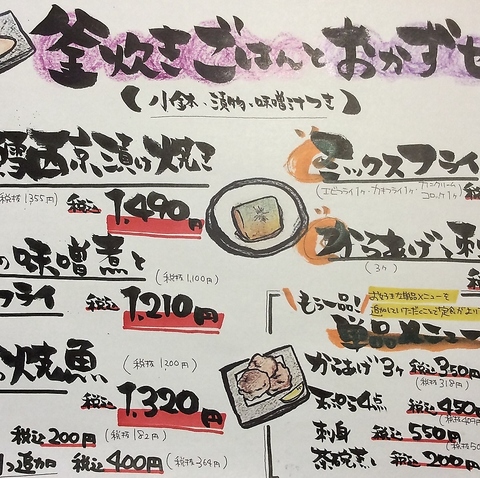 釜炊きごはんとおかずセ
(小鉢・漬物・味噌汁つき)
鱈西京漬け焼き
(税抜1355円) 税込1,490円
の味噌煮と
(税抜1,100円)
フライ 税込1,210円
の焼魚
(税抜1200円)
税込1,320円
税込200円 (税抜182円)
追加 税込400円 (税抜364円)
ミックスフライ
(エビフライ1ヶ・カキフライ1ヶ・カニクリームコロッケ1ヶ)
税
からあげと刺
(3ヶ)
もう一品!
お好きな単品メニューを
追加していただくことで定食が
単品メニュー
からあげ3ヶ 税込350円
(税抜318円)
天ぷら4点 税込450円
(税抜409
刺身 税込550円
(税抜50
茶碗蒸し 税込200円